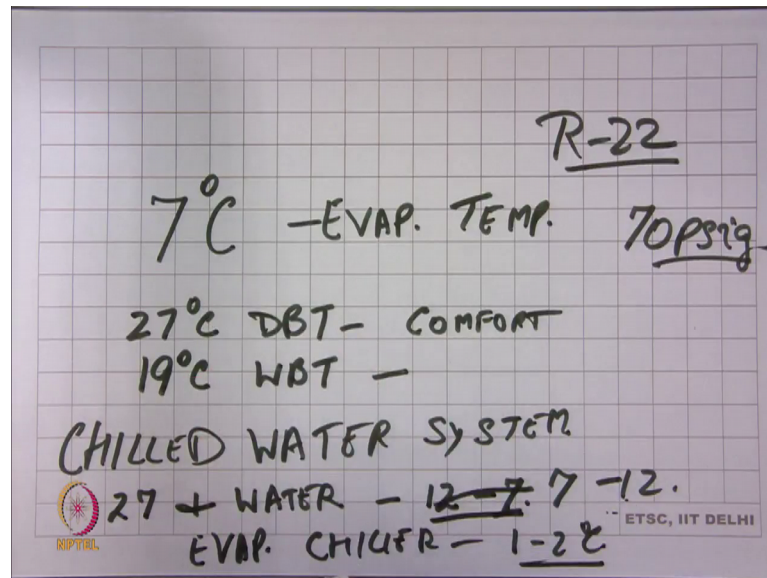 R-22
7°C - EVAP. TEMP. 70psig
27°C DBT - COMFORT
19°C WBT -
CHILLED WATER SYSTEM
27 + WATER - 12-7. 7-12.
ETSC, IIT DELHI
NPTEL
EVAP. CHILLER - 1-2°C